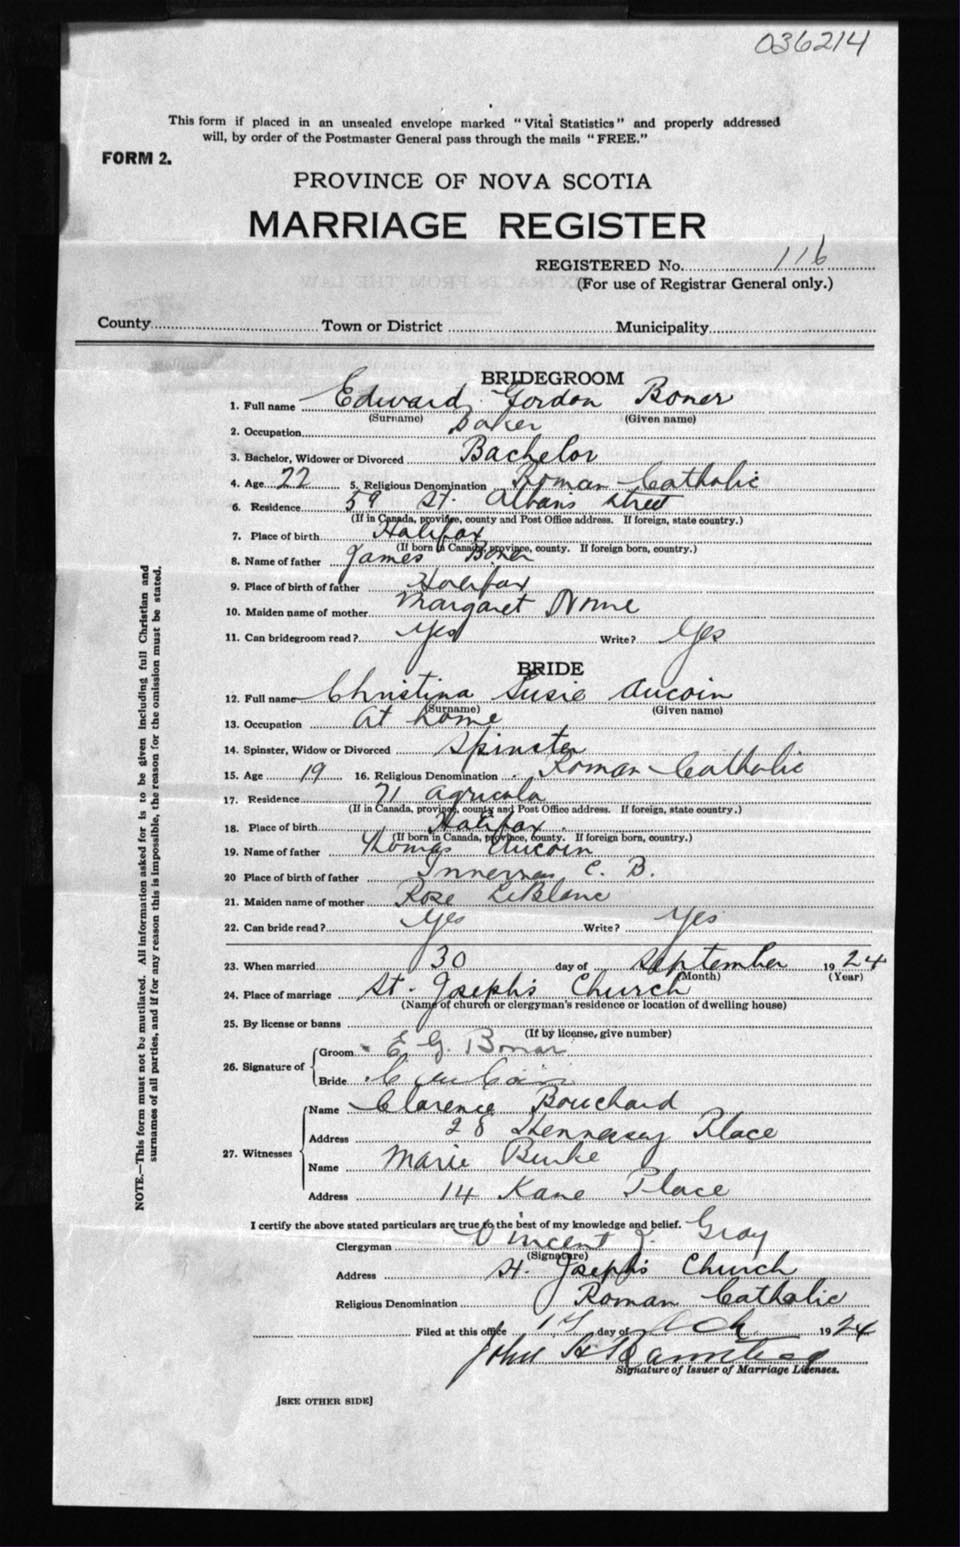 036214
This form if placed in an unsealed envelope marked "Vital Statistics" and properly addressed
will, by order of the Postmaster General pass through the mails "FREE."
FORM 2.
PROVINCE OF NOVA SCOTIA
MARRIAGE REGISTER
REGISTERED No. 116
(For use of Registrar General only.)
County Town or District Municipality
BRIDEGROOM
1. Full name Edward Gordon Boner
(Surname) (Given name)
2. Occupation Baker
3. Bachelor, Widower or Divorced Bachelor
4. Age 22 5. Religious Denomination Roman Catholic
6. Residence 59 St. Albans Street
(If in Canada, province, county and Post Office address. If foreign, state country.)
7. Place of birth Halifax
(If born in Canada, province, county. If foreign born, country.)
8. Name of father James Boner
9. Place of birth of father Halifax
10. Maiden name of mother Margaret
11. Can bridegroom read? Yes Write? Yes
BRIDE
12. Full name Christina Susie Aucoin
(Surname) (Given name)
13. Occupation At home
14. Spinster, Widow or Divorced Spinster
15. Age 19 16. Religious Denomination Roman Catholic
17. Residence 71 Agricola
(If in Canada, province, county and Post Office address. If foreign, state country.)
18. Place of birth Halifax
(If born in Canada, province, county. If foreign born, country.)
19. Name of father Thomas Aucoin
20 Place of birth of father C. B.
21. Maiden name of mother Rose LeBlanc
22. Can bride read? Yes Write? Yes
23. When married 30 day of September 1924
(Month) (Year)
24. Place of marriage St. Joseph's Church
(Name of church or clergyman's residence or location of dwelling house)
25. By license or banns
(If by license, give number)
26. Signature of Groom E G. Bonar
Bride C AuCoin
27. Witnesses Name Clarence Bouchard
Address 28 Hennessey Place
Name Marie Burke
Address 14 Kane Place
I certify the above stated particulars are true to the best of my knowledge and belief.
Clergyman Vincent J. Gray
(Signature)
Address St. Joseph's Church
Religious Denomination Roman Catholic
Filed at this office 17 day of Oct 1924
John H
Signature of Issuer of Marriage Licenses.
[SEE OTHER SIDE]
NOTE.—This form must not be mutilated. All information asked for is to be given including full Christian and
surnames of all parties, and if for any reason this is impossible, the reason for the omission must be stated.